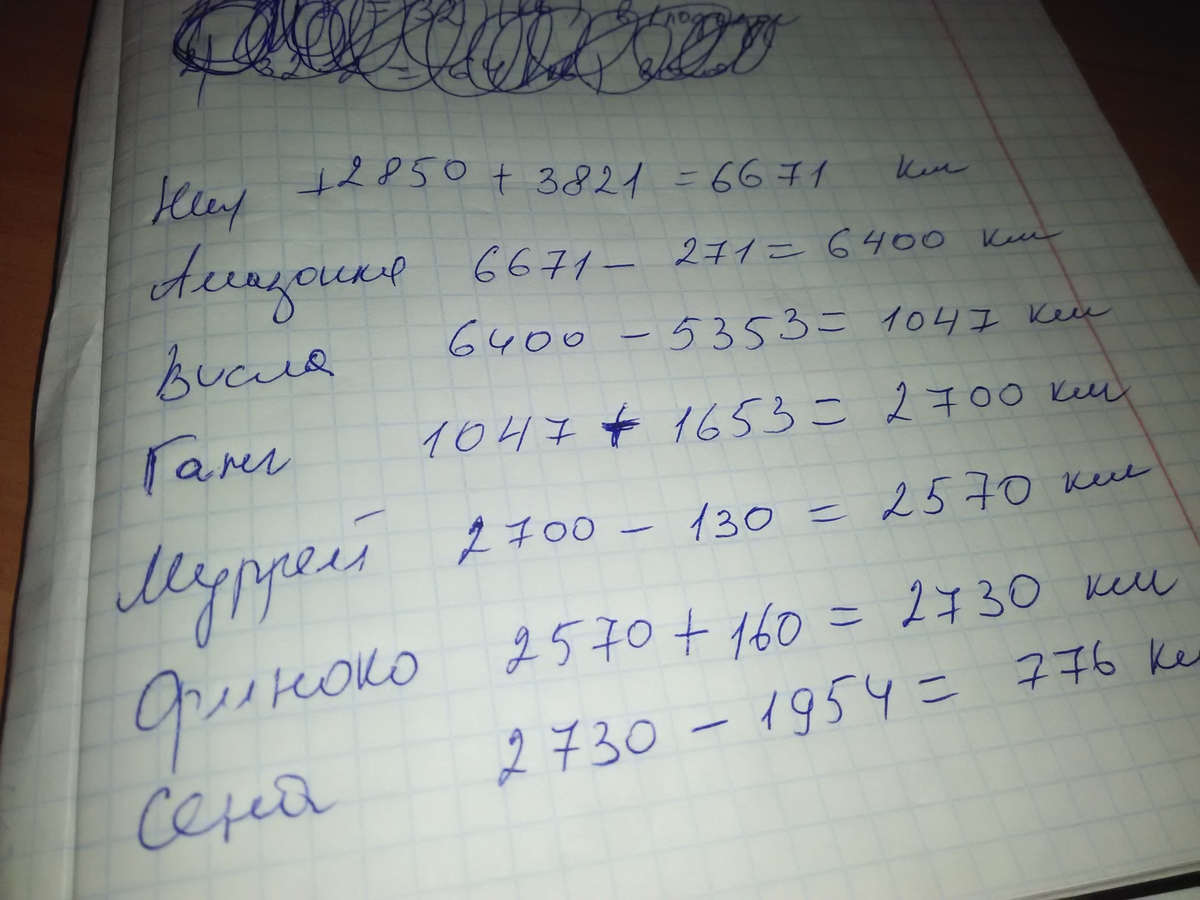 Нил +2850 + 3821 = 6671 км
Амазонка 6671 - 271 = 6400 км
Висла 6400 - 5353 = 1047 км
Ганг 1047 + 1653 = 2700 км
Муррей 2700 - 130 = 2570 км
Ориноко 2570 + 160 = 2730 км
Сена 2730 - 1954 = 776 км